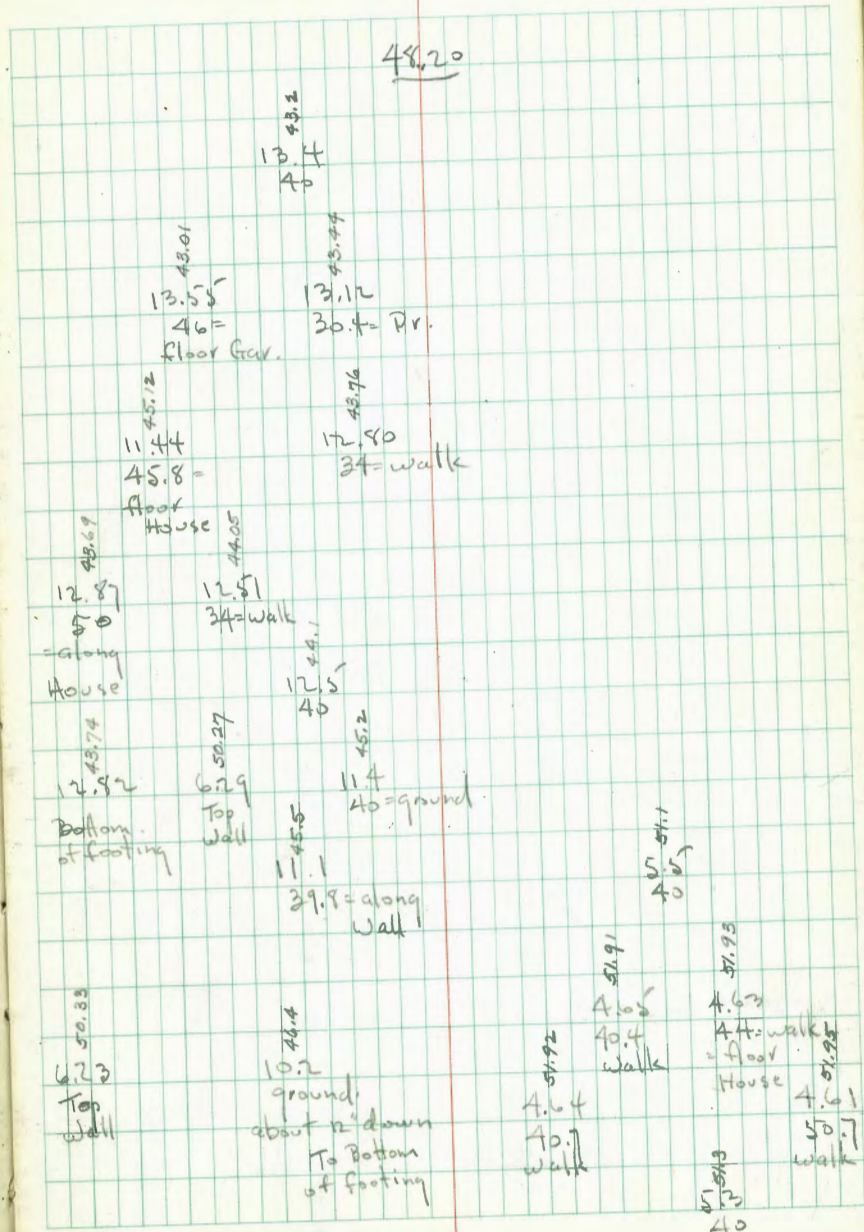 48.20
43.2
13.4
40
43.01
13.55
46=
floor Gar.
43.44
13.12
30.4= Dr.
45.12
11.44
45.8=
floor
House
43.76
12.80
34=walk
43.69
12.87
50
=along
House
44.05
12.51
34=walk
44.1
12.5
40
43.74
12.82
Bottom
of footing
50.27
6.29
Top
Wall
45.2
11.4
40=ground
45.5
11.1
39.8=along
Wall
51.1
5.5
40
50.33
6.23
Top
Wall
46.4
10.2
ground.
about 12" down
To Bottom
of footing
51.92
4.64
40.7
walk
51.91
4.65
40.4
walk
51.93
4.63
44=walk
=floor
House
51.95
4.61
50.7
walk
51.3
5.3
40